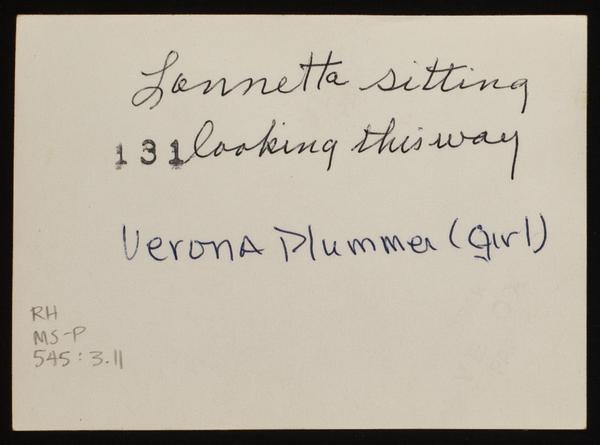 Lonnetta sitting
131 looking this way
Verona Plummer (girl)
RH
MS-P
545:3.11